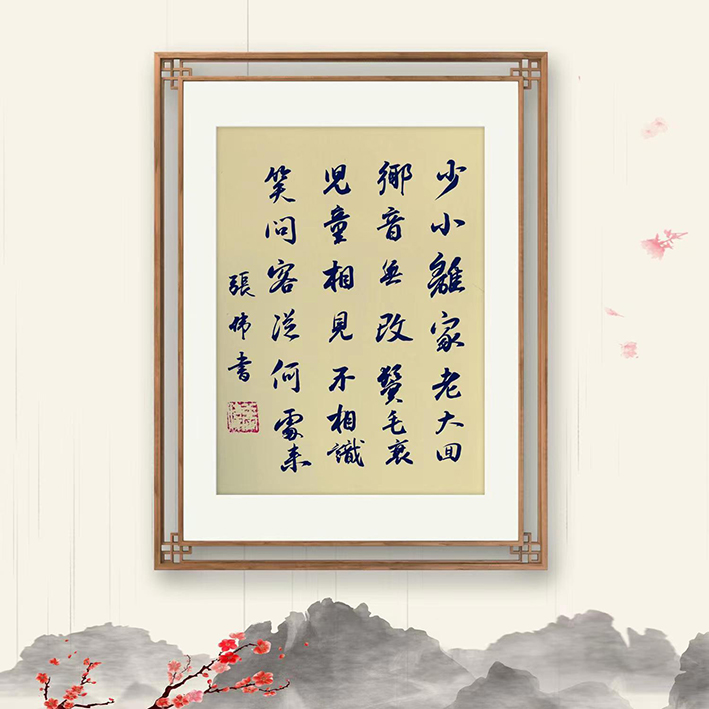 少小離家老大回
鄉音無改鬢毛衰
兒童相見不相識
笑問客從何處来
張偉書